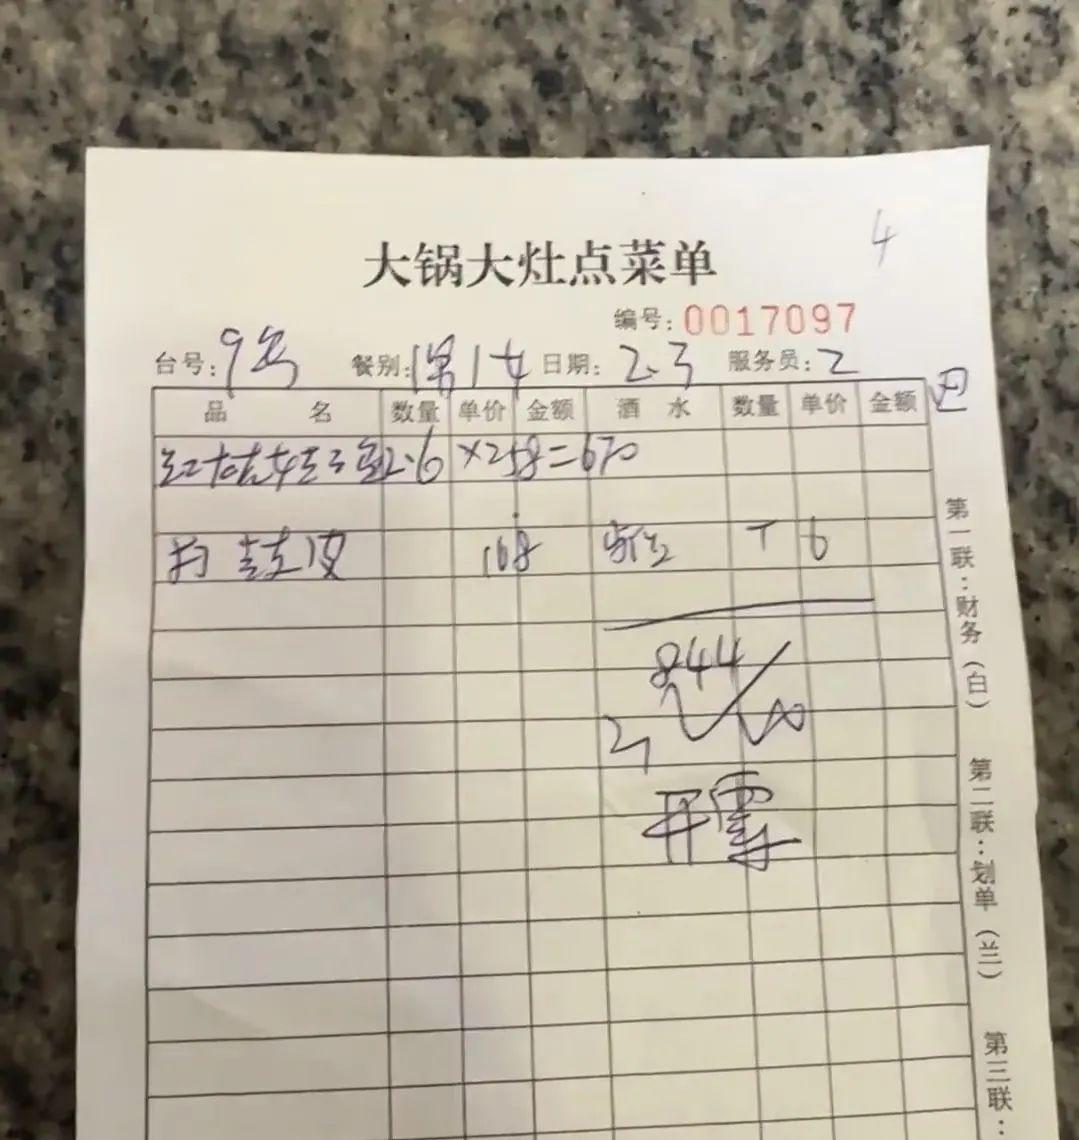 4
大锅大灶点菜单
编号: 0017097
台号: 9号 餐别: 日期: 2.3 服务员: 2
品 名 数量 单价 金额 酒 水 数量 单价 金额
2.6 ×258=670
皮 168 6
844
第一联:财务(白) 第二联:划单(兰) 第三联: